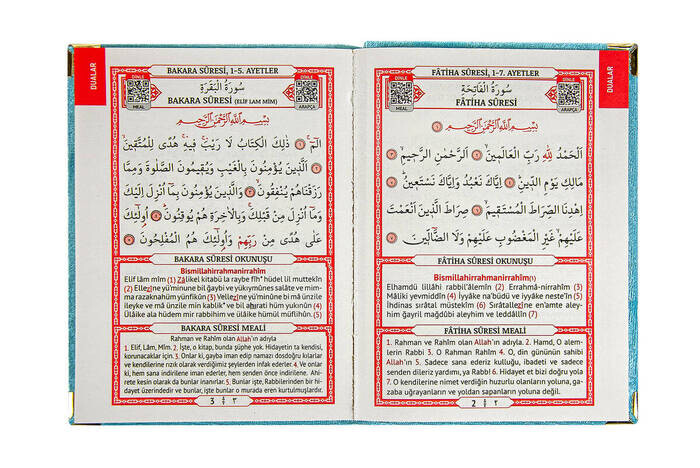 DUALAR
FÂTİHA SÛRESİ, 1-7. AYETLER
DİNLE
DİNLE
سُورَةُ الْفَاتِحَةِ
FÂTİHA SÛRESİ
MEAL
ARAPÇA
بِسْمِ اللّٰهِ الرَّحْمٰنِ الرَّحِيمِ ١
اَلْحَمْدُ لِلّٰهِ رَبِّ الْعَالَمِينَۙ ٢ اَلرَّحْمٰنِ الرَّحِيمِۙ ٣
مَالِكِ يَوْمِ الدِّينِۜ ٤ اِيَّاكَ نَعْبُدُ وَاِيَّاكَ نَسْتَعِينُۜ ٥
اِهْدِنَا الصِّرَاطَ الْمُسْتَقِيمَۙ ٦ صِرَاطَ الَّذِينَ اَنْعَمْتَ
عَلَيْهِمْۙ غَيْرِ الْمَغْضُوبِ عَلَيْهِمْ وَلَا الضَّٓالِّينَ ٧
FÂTİHA SÛRESİ OKUNUŞU
Bismillahirrahmanirrahîm(1)
Elhamdü lillâhi rabbil'âlemîn (2) Errahmâ-nirrahîm (3)
Mâliki yevmiddîn (4) İyyâke na'büdü ve iyyâke neste'în (5)
İhdinas sırâtal müstekîm (6) Sırâtallezîne en'amte aley-
him ğayril mağdûbi aleyhim ve leddâllîn (7)
FÂTİHA SÛRESİ MEALİ
1. Rahman ve Rahîm olan Allah'ın adıyla. 2. Hamd, O alem-
lerin Rabbi 3. O Rahman Rahîm 4. O, din gününün sahibi
Allah'ın 5. Sadece sana ederiz kulluğu, ibadeti ve sadece
senden dileriz yardımı, ya Rabb! 6. Hidayet et bizi doğru yola
7. O kendilerine nimet verdiğin huzurlu olanların yoluna, ga-
zaba uğrayanların ve yoldan sapanların yoluna değil.
2 ٢
DUALAR
BAKARA SÛRESİ, 1-5. AYETLER
DİNLE
DİNLE
سُورَةُ الْبَقَرَةِ
BAKARA SÛRESİ (ELİF LAM MİM)
MEAL
ARAPÇA
بِسْمِ اللّٰهِ الرَّحْمٰنِ الرَّحِيمِ
الٓمٓۚ ١ ذٰلِكَ الْكِتَابُ لَا رَيْبَۚ فِيهِۚ هُدًى لِلْمُتَّقِينَۙ
٢ اَلَّذِينَ يُؤْمِنُونَ بِالْغَيْبِ وَيُقِيمُونَ الصَّلٰوةَ وَمِمَّا
رَزَقْنَاهُمْ يُنْفِقُونَۙ ٣ وَالَّذِينَ يُؤْمِنُونَ بِمَٓا اُنْزِلَ اِلَيْكَ
وَمَٓا اُنْزِلَ مِنْ قَبْلِكَۚ وَبِالْاٰخِرَةِ هُمْ يُوقِنُونَۜ ٤ اُو۬لٰٓئِكَ
عَلٰى هُدًى مِنْ رَبِّهِمْ وَاُو۬لٰٓئِكَ هُمُ الْمُفْلِحُونَ ٥
BAKARA SÛRESİ OKUNUŞU
Bismillahirrahmanirrahîm
Elif lâm mîm (1) Zâlikel kitabü la raybe fîh* hüdel lil muttekîn
(2) Ellezîne yü'minune bil ğaybi ve yükıymûnes salâte ve mim-
ma razaknahüm yünfikûn (3) Vellezîne yü'minûne bi mâ ünzile
ileyke ve mâ ünzile min kablik* ve bil ahırati hüm yukınûn (4)
Ülâike ala hüdem mir rabbihim ve ülâike hümül müflihûn. (5)
BAKARA SÛRESİ MEALİ
Rahman ve Rahîm olan Allah'ın adıyla
1. Elif, Lâm, Mîm. 2. İşte, o kitap, bunda şüphe yok. Hidayetin ta kendisi,
korunacaklar için. 3. Onlar ki, gayba iman edip namazı dosdoğru kılarlar
ve kendilerine rızık olarak verdiğimiz şeylerden infak ederler. 4. Ve onlar
ki, hem sana indirilene iman ederler, hem senden önce indirilene. Ahi-
rete kesin olarak da bunlar inanırlar. 5. Bunlar işte, Rabbilerinden bir hi-
dayet üzerindedir ve bunlar, işte bunlar o murada eren kurtulmuşlardır.
3 ٣